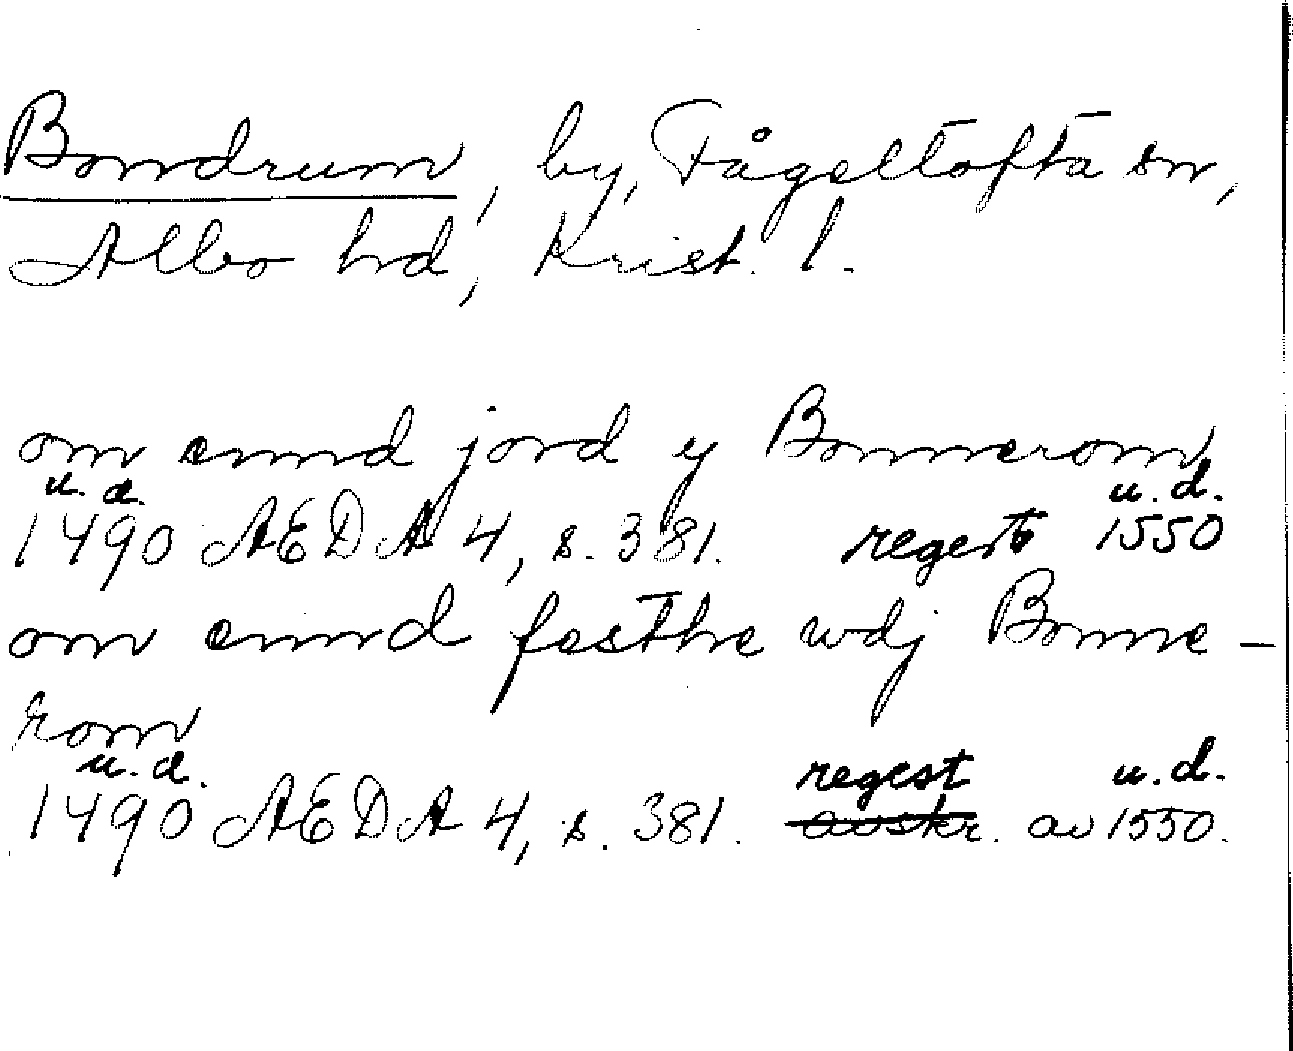 Bondrum, by, Fågeltofta sn,
Albo hd, Krist. l.
om ennd jord y Bonnerom
u. d. u. d.
1490 AEDA 4, s. 381. regest 1550
om ennd festhe wdj Bonne-
rom
u. d. regest u. d.
1490 AEDA 4, s. 381. avskr. av 1550.